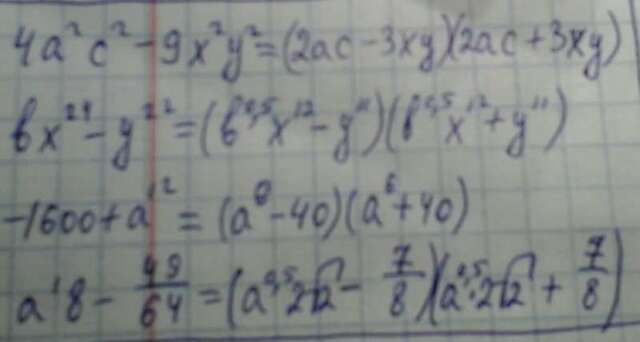 4a²c² - 9x²y² = (2ac - 3xy)(2ac + 3xy)
bx²⁴ - y²² = (b⁰·⁵x¹² - y¹¹)(b⁰·⁵x¹² + y¹¹)
-1600 + a¹² = (a⁶ - 40)(a⁶ + 40)
a¹8 - 49/64 = (a⁰·⁵2√2 - 7/8)(a⁰·⁵·2√2 + 7/8)